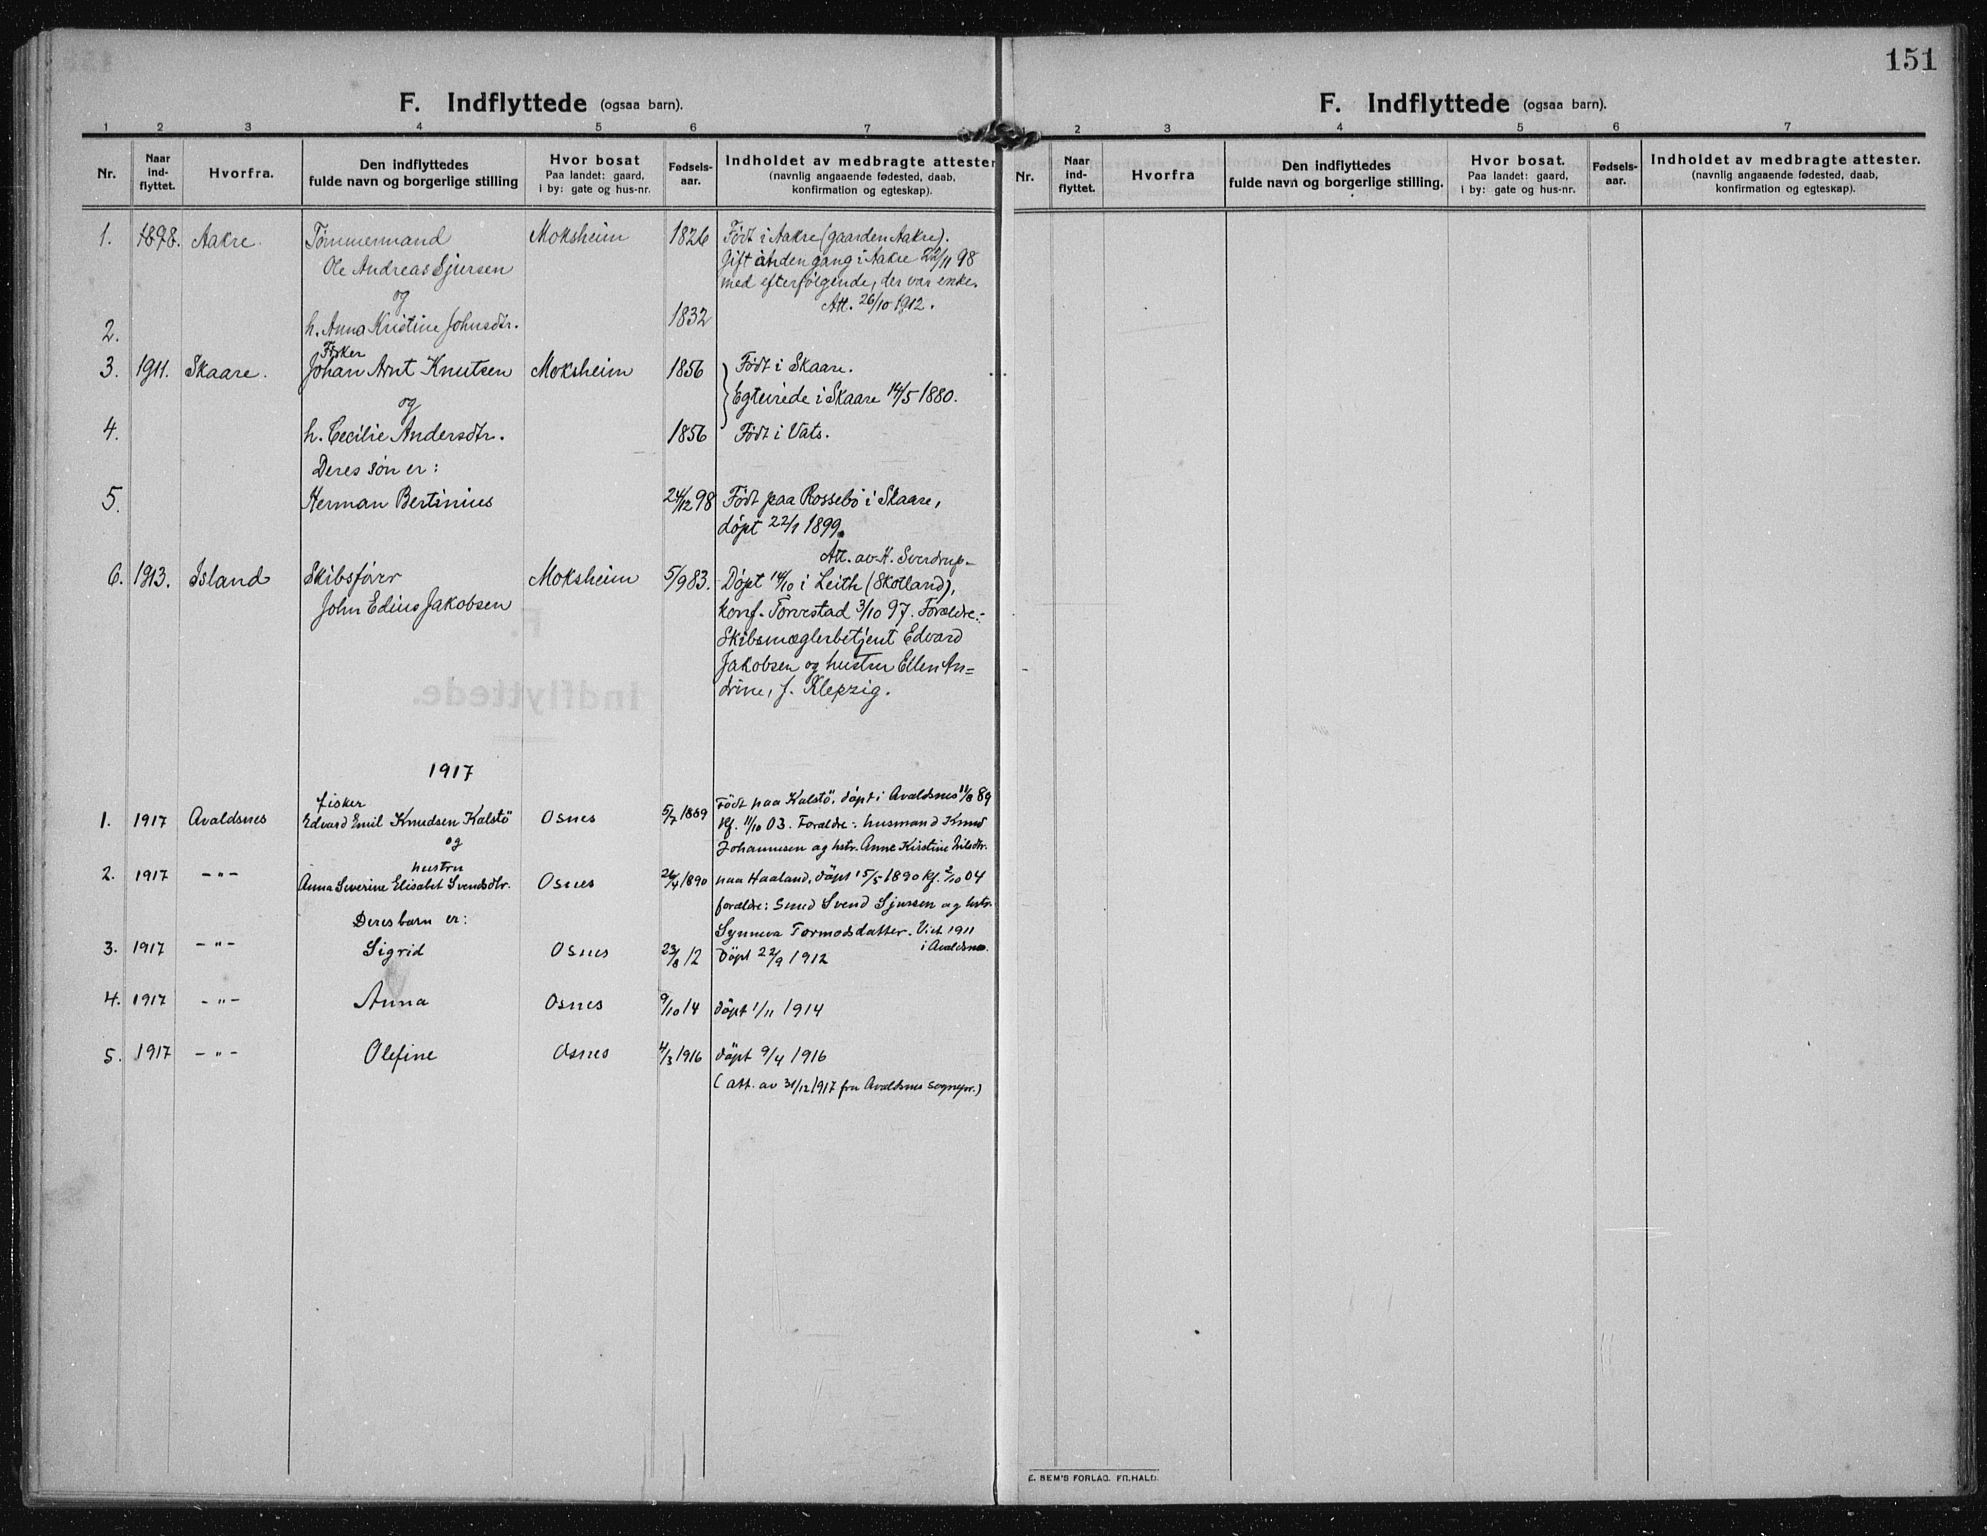 151
F. Indflyttede (ogsaa barn).
1 2 3 4 5 6 7
Nr. Naar ind-flyttet. Hvorfra. Den indflyttedes fulde navn og borgerlige stilling Hvor bosat Paa landet: gaard, i by: gate og hus-nr. Fødsels-aar. Indholdet av medbragte attester (navnlig angaaende fødested, daab, konfirmation og egteskap).
1. 1898. Aakre. Tømmermand Moksheim 1826 Født i Aakre (gaarden Aakre).
Ole Andreas Sjursen Gift anden gang i Aakre 22/11 98
og med efterfølgende, der var enke.
Att. 26/10 1912.
2. h. Anna Kristine Johnsdtr. 1832
Fisker
3. 1911. Skaare. Johan Arnt Knutsen Moksheim 1856 Født i Skaare.
og Egteviede i Skaare 14/5 1880.
4. h. Cecilie Andersdtr. 1856 Født i Vats.
Deres søn er:
5. Herman Bertinius 24/12 98 Født paa Rossebø i Skaare,
døpt 22/1 1899.
Att. av H. Sverdrup.
6. 1913. Island Skibsfører Moksheim 5/9 83. Døpt 14/10 i Leith (Skotland),
John Edius Jakobsen konf. Torvestad 3/10 97. Forældre:
Skibsmæglerbetjent Edvard
Jakobsen og hustru Ellen An=
drine, f. Klepzig.
1917
fisker Født paa Kalstø, døpt i Avaldsnes 11/8 89
1. 1917 Avaldsnes Edvard Emil Knudsen Kalstö Osnes 5/7 1889 kf. 11/10 03. Forældre: husmand Knud
og Johannesen og hstr. Anne Kirstine Nilsdtr.
hustru
2. 1917 -"- Anna Severine Elisabet Svendsdtr. Osnes 26/4 1890 paa Haaland, døpt 15/5 1890 kf. 2/10 04
forældre: Smed Svend Sjursen og hstr.
Deres barn er: Synneva Tormodsdatter. Viet 1911
i Avaldsnes.
3. 1917 -"- Sigrid Osnes 23/8 12 Døpt 22/9 1912
4. 1917 -"- Anna Osnes 9/10 14 døpt 1/11 1914
5. 1917 -"- Olefine Osnes 4/3 1916 døpt 9/4 1916
(att. av 31/12 1917 fra Avaldsnes sognepr.)
F. Indflyttede (ogsaa barn).
1 2 3 4 5 6 7
Nr. Naar ind-flyttet. Hvorfra Den indflyttedes fulde navn og borgerlige stilling. Hvor bosat. Paa landet: gaard, i by: gate og hus-nr. Fødsels-aar. Indholdet av medbragte attester. (navnlig angaaende fødested, daab, konfirmation og egteskap).
E. SEM'S FORLAG. FR.HALD.